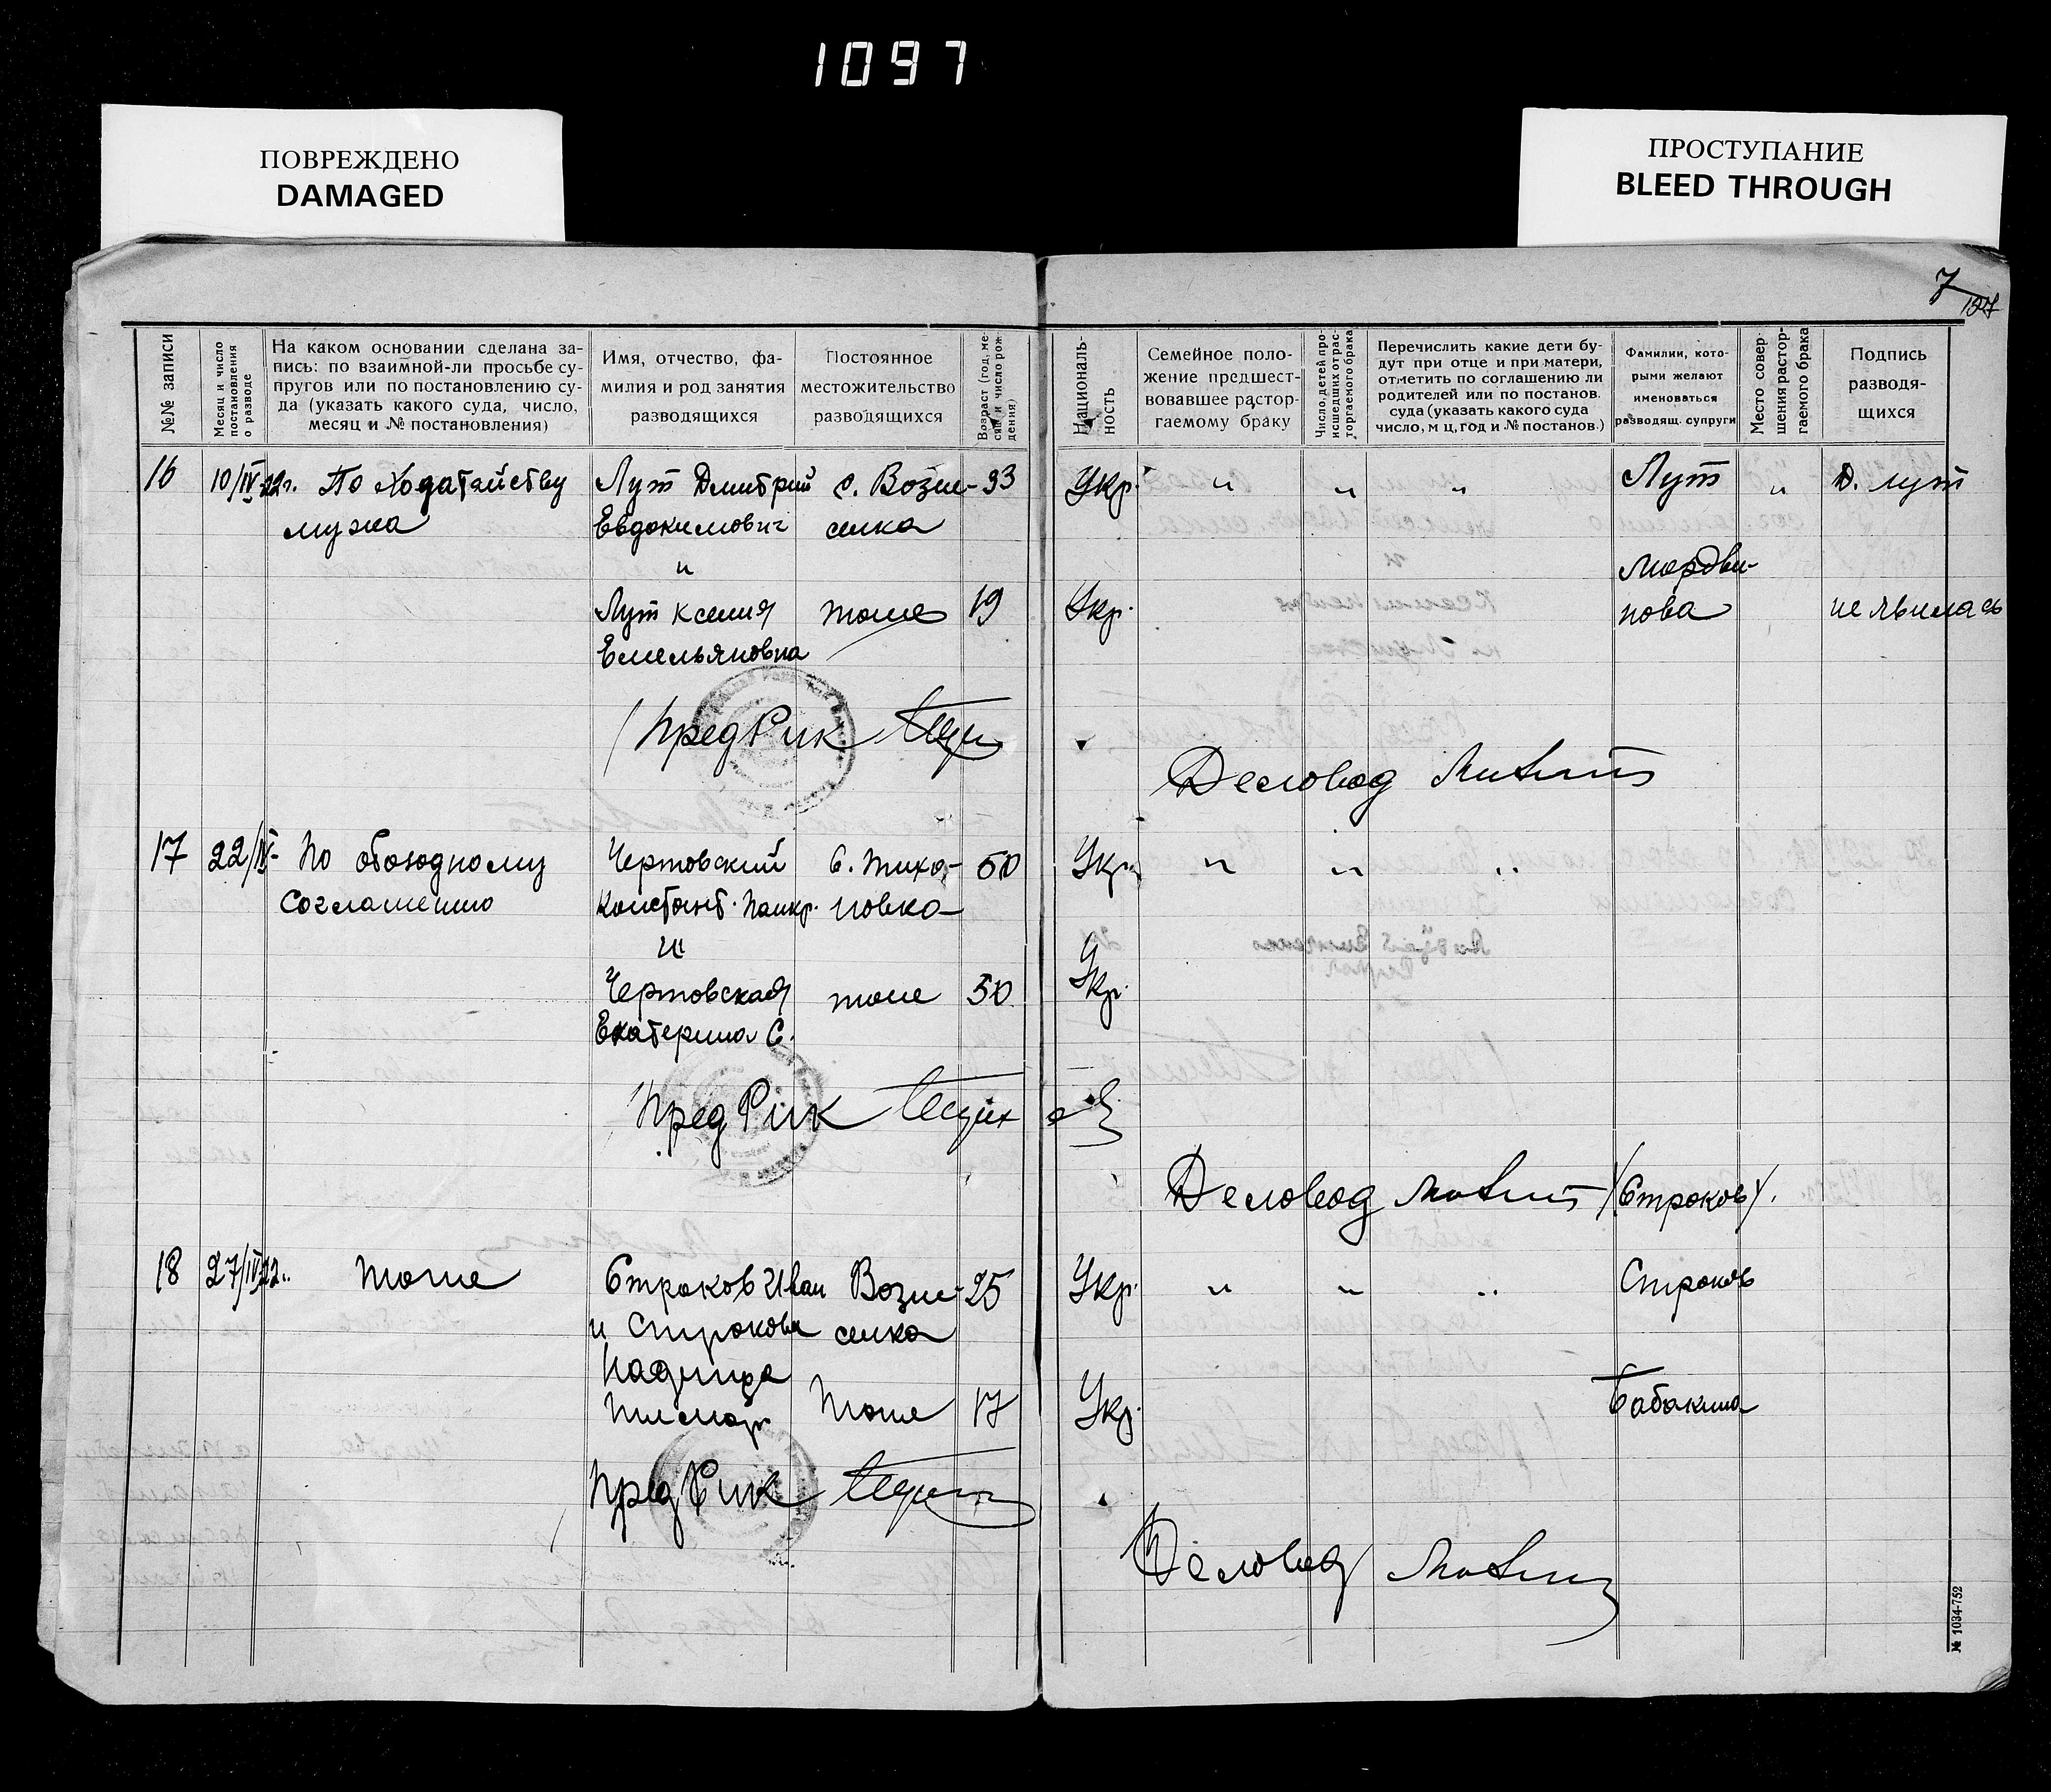 1097
ПОВРЕЖДЕНО
DAMAGED
ПРОСТУПАНИЕ
BLEED THROUGH
7
№№ записи
Месяц и число
постановления
о разводе
На каком основании сделана за-
пись: по взаимной-ли просьбе су-
пругов или по постановлению су-
да (указать какого суда, число,
месяц и № постановления)
Имя, отчество, фа-
милия и род занятия
разводящихся
Постоянное
местожительство
разводящихся
Возраст (год, ме-
сяц и число рож-
дения)
Националь-
ность
Семейное поло-
жение предшест-
вовавшее растор-
гаемому браку
Число детей про-
исшедших от рас-
торгаемого брака
Перечислить какие дети бу-
дут при отце и при матери,
отметить по соглашению ли
родителей или по постанов.
суда (указать какого суда
число, м ц, год и № постанов.)
Фамилии, кото-
рыми желают
именоваться
разводящ. супруги
Место совер-
шения растор-
гаемого брака
Подпись
разводя-
щихся
16 10/IV 22г. По ходатайству Лут Дмитрий с. Возне- 33 Укр. " " " Лут " Д. Лут
мужа Евдокимович сенка
и Мордви-
Лут Ксения тоже 19 Укр. нова не явилась
Емельяновна
Пред Рик
Деловод
17 22/IV- По обоюдному Чертовский с. Тихо- 50 Укр. " " "
согласению Констант. Панкр. новка
и
Чертовская тоже 50 Укр.
Екатерина С.
Пред Рик
Деловод /Строков/.
18 27/IV 22.. тоже Строков Иван Возне- 25 Укр. " " " Строков
и Строкова сенка
Тоже 17 Укр. Бабакина
Пред Рик
Деловод
№ 1034-752